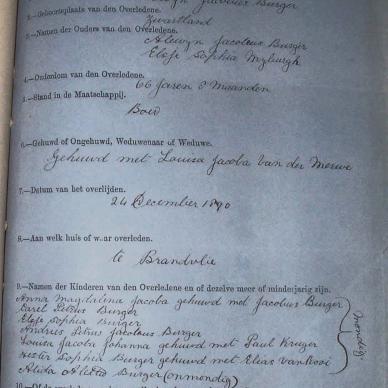 Jacobus Burger
2.—Geboorteplaats van den Overledene.
Zwartland
3.—Namen der Ouders van den Overledene.
Alewyn Jacobus Burger
Elsje Sophia Myburgh
4.—Ouderdom van den Overledene.
66 Jaren 8 Maanden
5.—Stand in de Maatschappij.
Boer
6.—Gehuwd of Ongehuwd, Weduwenaar of Weduwe.
Gehuwd met Louisa Jacoba van der Merwe
7.—Datum van het overlijden.
24 December 1890
8.—Aan welk huis of waar overleden.
te Brandvlie
9.—Namen der Kinderen van den Overledene en of dezelve meer of minderjarig zijn.
Anna Magdalina Jacoba gehuwd met Jacobus Burger
Carel Petrus Burger
Elsje Sophia Burger
Andries Petrus Jacobus Burger
Louisa Jacoba Johanna gehuwd met Paul Kruger
Hester Sophia Burger gehuwd met Elias van Rooi
Alida Aletta Burger (onmondig)
mondig